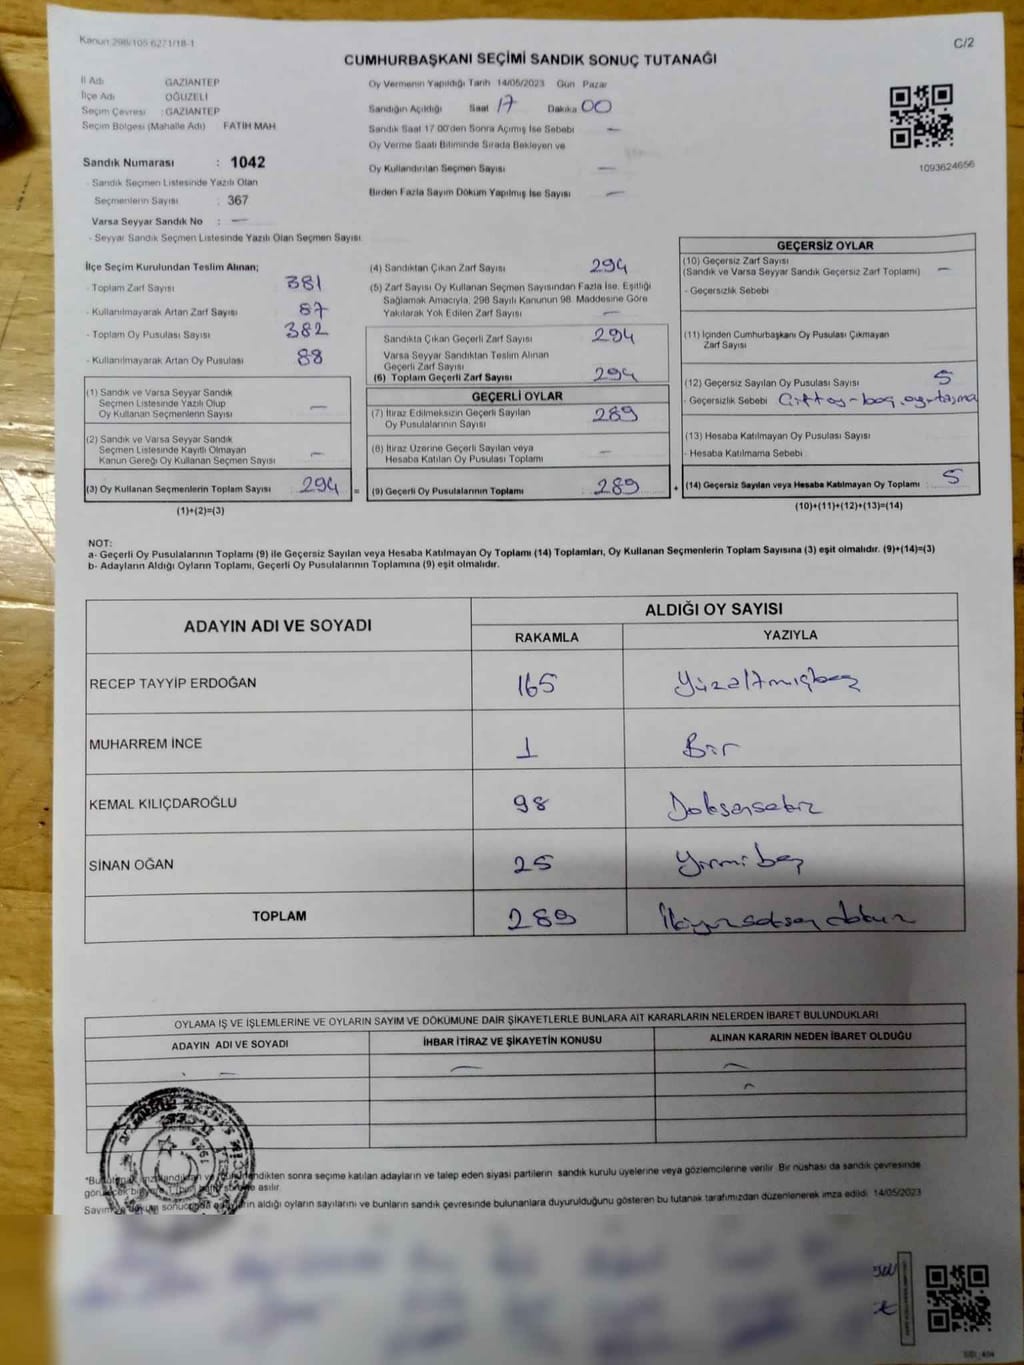 Kanun 298/105 6271/18-1
C/2
CUMHURBAŞKANI SEÇİMİ SANDIK SONUÇ TUTANAĞI
İl Adı GAZİANTEP
İlçe Adı OĞUZELİ
Seçim Çevresi : GAZİANTEP
Seçim Bölgesi (Mahalle Adı) FATİH MAH
Sandık Numarası : 1042
- Sandık Seçmen Listesinde Yazılı Olan
Seçmenlerin Sayısı : 367
Varsa Seyyar Sandık No : —
- Seyyar Sandık Seçmen Listesinde Yazılı Olan Seçmen Sayısı
Oy Vermenin Yapıldığı Tarih 14/05/2023 Gün Pazar
Sandığın Açıldığı Saat 17 Dakika 00
Sandık Saat 17 00'den Sonra Açılmış İse Sebebi —
Oy Verme Saati Bitiminde Sırada Bekleyen ve
Oy Kullandırılan Seçmen Sayısı —
Birden Fazla Sayım Döküm Yapılmış İse Sayısı —
1093624656
İlçe Seçim Kurulundan Teslim Alınan;
- Toplam Zarf Sayısı 381
- Kullanılmayarak Artan Zarf Sayısı 87
- Toplam Oy Pusulası Sayısı 382
- Kullanılmayarak Artan Oy Pusulası 88
(1) Sandık ve Varsa Seyyar Sandık
Seçmen Listesinde Yazılı Olup
Oy Kullanan Seçmenlerin Sayısı —
(2) Sandık ve Varsa Seyyar Sandık
Seçmen Listesinde Kayıtlı Olmayan
Kanun Gereği Oy Kullanan Seçmen Sayısı —
(3) Oy Kullanan Seçmenlerin Toplam Sayısı 294 =
(1)+(2)=(3)
(4) Sandıktan Çıkan Zarf Sayısı 294
(5) Zarf Sayısı Oy Kullanan Seçmen Sayısından Fazla İse, Eşitliği
Sağlamak Amacıyla, 298 Sayılı Kanunun 98. Maddesine Göre
Yakılarak Yok Edilen Zarf Sayısı —
Sandıkta Çıkan Geçerli Zarf Sayısı 294
Varsa Seyyar Sandıktan Teslim Alınan
Geçerli Zarf Sayısı
(6) Toplam Geçerli Zarf Sayısı 294
GEÇERLİ OYLAR
(7) İtiraz Edilmeksizin Geçerli Sayılan
Oy Pusulalarının Sayısı 289
(8) İtiraz Üzerine Geçerli Sayılan veya
Hesaba Katılan Oy Pusulası Toplamı —
(9) Geçerli Oy Pusulalarının Toplamı 289 +
GEÇERSİZ OYLAR
(10) Geçersiz Zarf Sayısı
(Sandık ve Varsa Seyyar Sandık Geçersiz Zarf Toplamı) —
- Geçersizlik Sebebi
(11) İçinden Cumhurbaşkanı Oy Pusulası Çıkmayan
Zarf Sayısı
(12) Geçersiz Sayılan Oy Pusulası Sayısı 5
- Geçersizlik Sebebi Çift oy - boş oy
(13) Hesaba Katılmayan Oy Pusulası Sayısı
- Hesaba Katılmama Sebebi
(14) Geçersiz Sayılan veya Hesaba Katılmayan Oy Toplamı 5
(10)+(11)+(12)+(13)=(14)
NOT:
a- Geçerli Oy Pusulalarının Toplamı (9) ile Geçersiz Sayılan veya Hesaba Katılmayan Oy Toplamı (14) Toplamları, Oy Kullanan Seçmenlerin Toplam Sayısına (3) eşit olmalıdır. (9)+(14)=(3)
b- Adayların Aldığı Oyların Toplamı, Geçerli Oy Pusulalarının Toplamına (9) eşit olmalıdır.
ADAYIN ADI VE SOYADI ALDIĞI OY SAYISI
RAKAMLA YAZIYLA
RECEP TAYYİP ERDOĞAN 165 Yüzaltmışbeş
MUHARREM İNCE 1 Bir
KEMAL KILIÇDAROĞLU 98 Doksansekiz
SİNAN OĞAN 25 Yirmibeş
TOPLAM 289 İkiyüzseksendokuz
OYLAMA İŞ VE İŞLEMLERİNE VE OYLARIN SAYIM VE DÖKÜMÜNE DAİR ŞİKAYETLERLE BUNLARA AİT KARARLARIN NELERDEN İBARET BULUNDUKLARI
ADAYIN ADI VE SOYADI İHBAR İTİRAZ VE ŞİKAYETİN KONUSU ALINAN KARARIN NEDEN İBARET OLDUĞU
sonra seçime katılan adayların ve talep eden siyasi partilerin sandık kurulu üyelerine veya gözlemcilerine verilir. Bir nüshası da sandık çevresinde
asılır.
aldığı oyların sayılarını ve bunların sandık çevresinde bulunanlara duyurulduğunu gösteren bu tutanak tarafımızdan düzenlenerek imza edildi. 14/05/2023